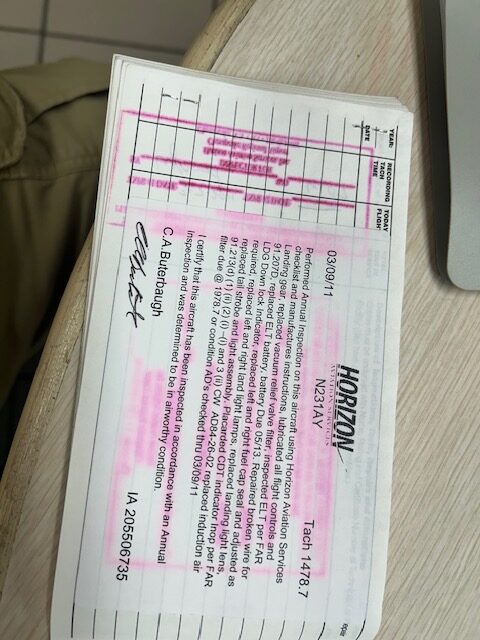 YEAR:
DATE
RECORDING
TACH
TIME
TODAY
FLIGHT
HORIZON
AVIATION SERVICES
03/09/11
N231AY
Tach 1478.7
Performed Annual Inspection on this aircraft using Horizon Aviation Services
checklist and manufactures instructions, lubricated all flight controls and
Landing gear, replaced vacuum relief valve filter, inspected ELT per FAR
91.207D, replaced ELT battery, battery Due 05/13. Repaired broken wire for
LDG Down lock Indicator, replaced left and right fuel cap seal and adjusted as
required, replaced left and right land light lamps, replaced landing light lens,
replaced tail strobe and light assembly. Placarded CDT indicator Inop per FAR
91.213(d) (1) (ii) (2) (i) –(i) and 3 (ii) CW. AD84-26-02 replaced induction air
filter due @ 1978.7 or condition AD's checked thru 03/09/11
I certify that this aircraft has been inspected in accordance with an Annual
Inspection and was determined to be in airworthy condition.
C.A.Buterbaugh
IA 205506735